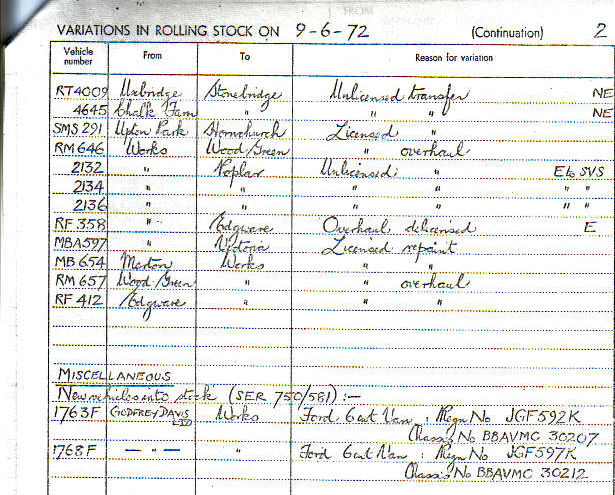 VARIATIONS IN ROLLING STOCK ON 9-6-72 (Continuation) 2
Vehicle number From To Reason for variation
RT4009 Uxbridge Stonebridge Unlicensed transfer NE
4645 Chalk Farm " " " NE
SMS 291 Upton Park Hornchurch Licensed "
RM 646 Works Wood Green " overhaul
2132 " Poplar Unlicensed; " E to SVS
2134 " " " " " "
2136 " " " " " "
RF 358 " Edgware Overhaul delicensed E
MBA597 " Victoria Licensed repaint
MB 654 Merton Works " "
RM 657 Wood Green " " overhaul
RF 412 Edgware " " "
MISCELLANEOUS
New vehicles into stock (SER 750/581) :-
1763F GODFREY DAVIS LTD Works Ford 6cwt Van : Regn No JGF592K
Chassis No BBAVMC 30207
1768F — " — " Ford 6cwt Van : Regn No JGF597K
Chassis No BBAVMC 30212